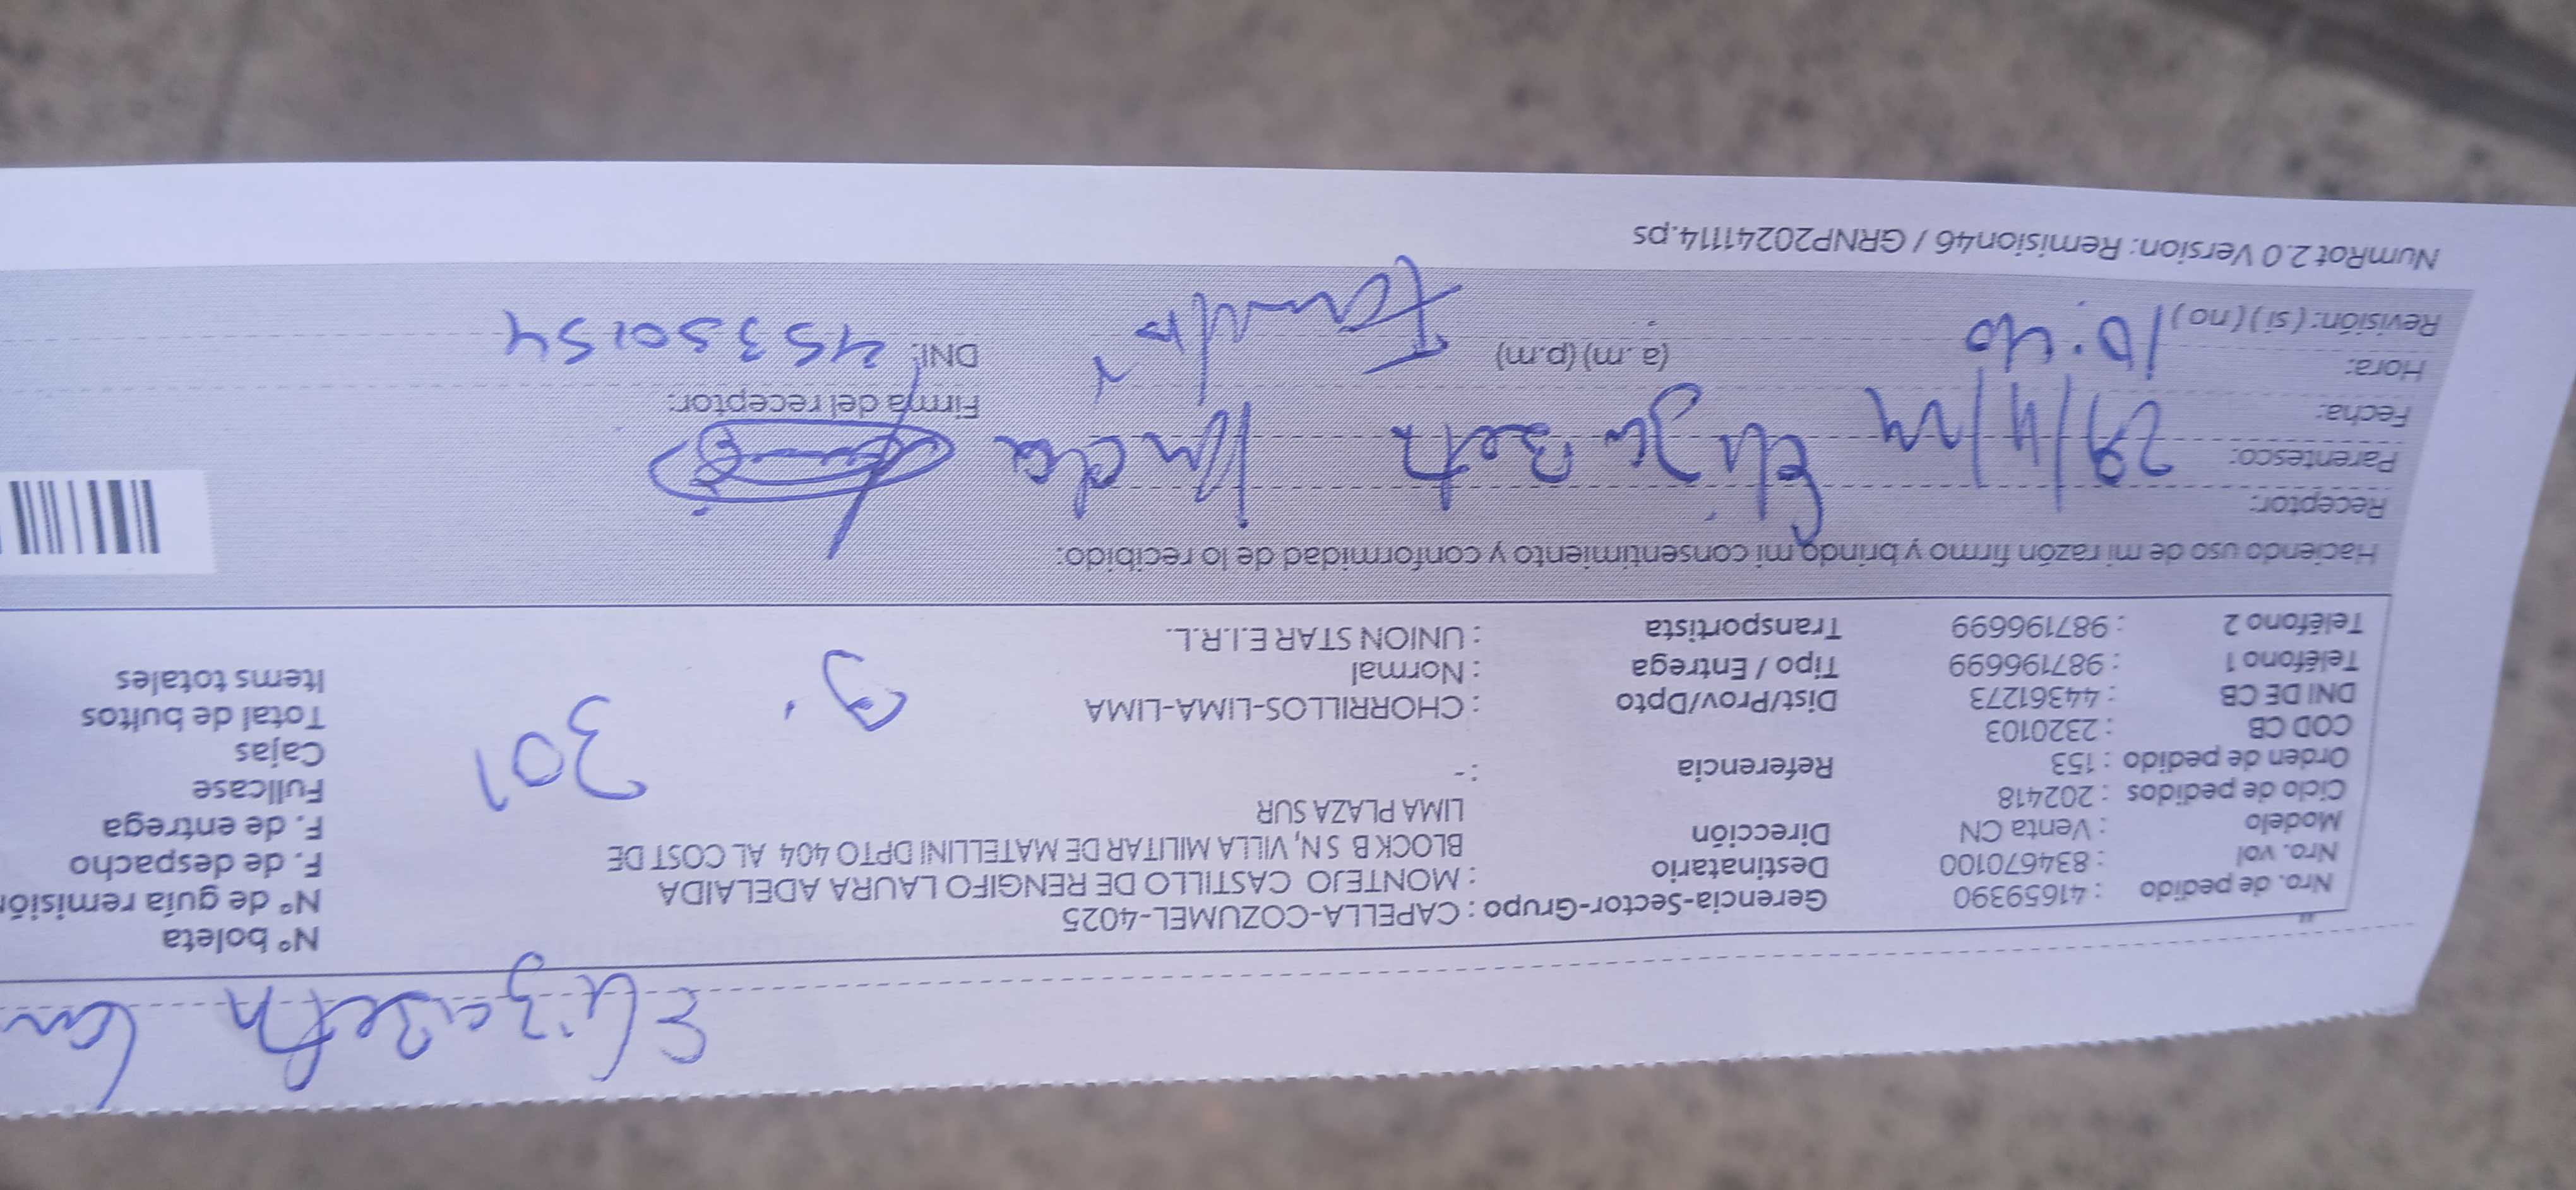 Elizabeth
Nro. de pedido : 41659390 Gerencia-Sector-Grupo : CAPELLA-COZUMEL-4025 N° boleta
Nro. vol : 834670100 Destinatario : MONTEJO CASTILLO DE RENGIFO LAURA ADELAIDA N° de guía remisión
Modelo : Venta CN Dirección BLOCK B SN, VILLA MILITAR DE MATELLINI DPTO 404 AL COST DE F. de despacho
Ciclo de pedidos : 202418 LIMA PLAZA SUR F. de entrega
Orden de pedido : 153 Referencia : - 301 Fullcase
COD CB : 2320103 Cajas
DNI DE CB : 44361273 Dist/Prov/Dpto : CHORRILLOS-LIMA-LIMA Total de bultos
Teléfono 1 : 987196699 Tipo / Entrega : Normal Items totales
Teléfono 2 : 987196699 Transportista : UNION STAR E.I.R.L.
Haciendo uso de mi razón firmo y brindo mi consentimiento y conformidad de lo recibido:
Receptor:
Parentesco: Elizabeth
Fecha: 29/11/ Firma del receptor:
Hora: 10:40 (a.m) (p.m) DNI: 45350154
Revisión: (si) (no)
NumRot 2.0 Version: Remision46 / GRNP20241114.ps